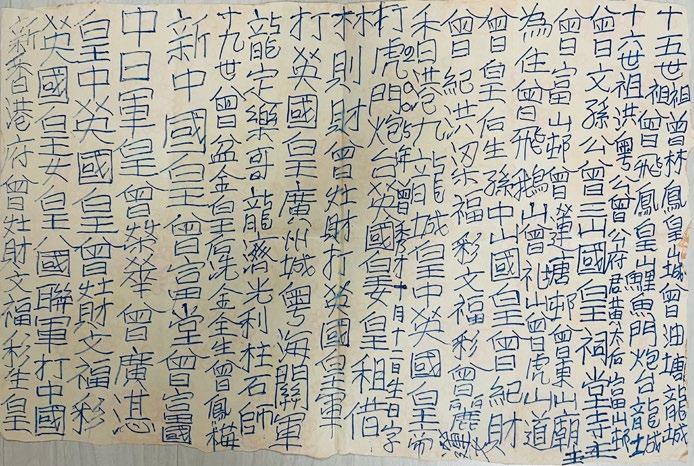 十五世祖曾林鳳皇山城曾油塘龍城
祖曾飛鳳皇山鯉魚門炮台龍城
十六世祖洪粵公曾公府居黃大石富山邨
曾文孫公曾三山國皇祠堂寺主
曾富山邨曾蓮塘邨曾東山廟主
為住曾飛鵝山曾礼山曾虎山道
曾皇后生孫中山國皇曾紀財
曾紀洪梁福彩文福彩曾
禾日港九龍城皇中英國皇帝
年曾秀才十月十二日生日字
打虎門炮台英國皇妻皇租借
林則財曾灶財打英國皇軍
打英國皇廣州城粵海關軍
龍定樂哥龍濟光利柱石師
十九世曾盆金皇后洗金全生曾鳳梅
新中國皇曾富堂曾富國
中日軍皇曾榮華曾廣湛
皇中英國皇曾灶財文福彩
英國皇女皇八國聯軍打中國
新香港府曾灶財文福彩生皇